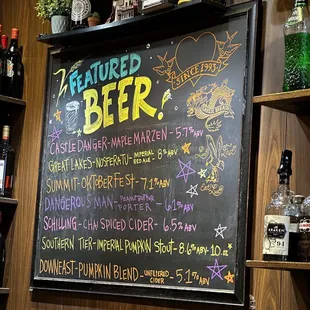 FEATURED
BEER!
SINCE 1993
CASTLE DANGER - MAPLE MARZEN - 5.7% ABV
GREAT LAKES - NOSFERATU - IMPERIAL RED ALE - 8% ABV
SUMMIT - OKTOBERFEST - 7.1% ABV
DANGEROUS MAN - PEANUT BUTTER PORTER - 6.1% ABV
SCHILLING - CHAI SPICED CIDER - 6.5% ABV
SOUTHERN TIER - IMPERIAL PUMPKIN STOUT - 8.6% ABV - 10 oz
DOWNEAST - PUMPKIN BLEND - UNFILTERED CIDER - 5.1% ABV
KRAKEN